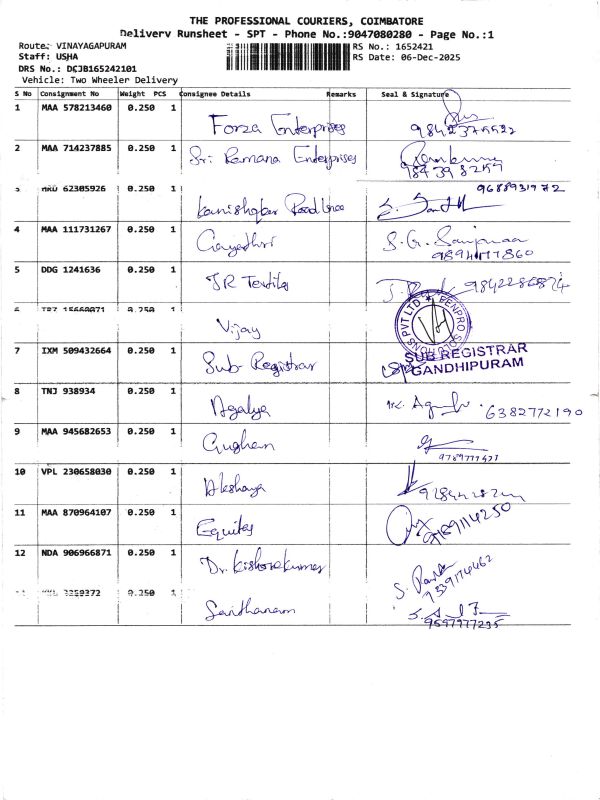 THE PROFESSIONAL COURIERS, COIMBATORE
Delivery Runsheet - SPT - Phone No.:9047080280 - Page No.:1
Route: VINAYAGAPURAM
RS No.: 1652421
Staff: USHA
RS Date: 06-Dec-2025
DRS No.: DCJB165242101
Vehicle: Two Wheeler Delivery
S No Consignment No Weight PCS Consignee Details Remarks Seal & Signature
1 MAA 578213460 0.250 1
Forza Enterprises
2 MAA 714237885 0.250 1
Sri Ramana Enterprises
62305926 0.250 1 9688931972
Kanishqkar Roadlines
4 MAA 111731267 0.250 1
Gayathri S.G.
5 DDG 1241636 0.250 1
JR Textiles
0.250 1
Vijay
FENPRO PVT LTD
7 IXM 509432664 0.250 1
Sub Registrar
SUB REGISTRAR
GANDHIPURAM
8 TNJ 938934 0.250 1
Agalya 6382772190
9 MAA 945682653 0.250 1
Gughan
9789777577
10 VPL 230658030 0.250 1
Akshaya
11 MAA 870964107 0.250 1
Equitas
12 NDA 906966871 0.250 1
Dr. Kishorekumar
3259372 0.250 1
Santhanam
9597977295